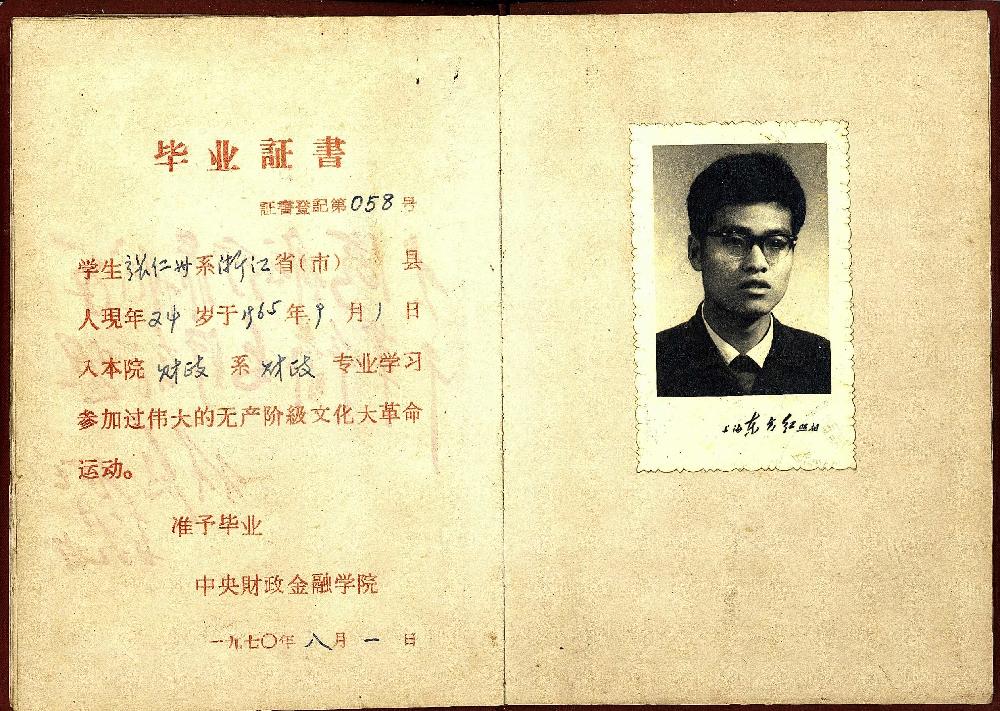 毕业証書
証書登記第058号
学生張仁州系浙江省(市) 县
人現年24岁于1965年9月1日
入本院财政系财政专业学习
参加过伟大的无产阶級文化大革命
运动。
准予毕业
中央財政金融学院
一九七〇年八月一日
上海东方红照相